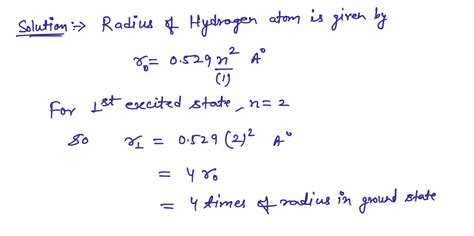 Solution :→ Radius of Hydrogen atom is given by
r₀ = 0.529 n²/(1) A°
For 1st excited state, n = 2
So r₁ = 0.529 (2)² A°
= 4 r₀
= 4 times of radius in ground state